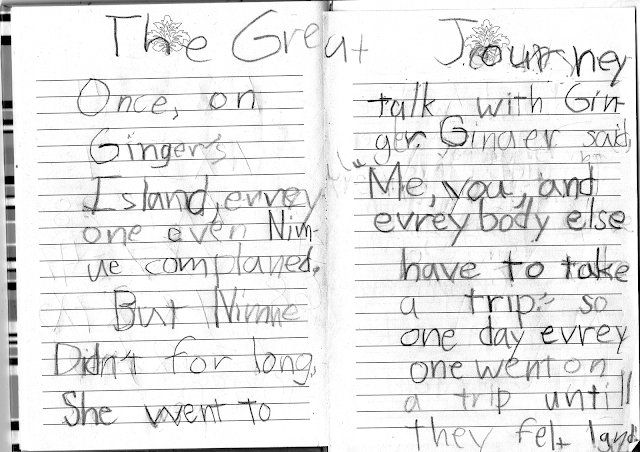 The Great Journey
Once, on
Ginger's
Island, evrey
one even Nim-
ue complaned.
But Nimue
Didn't for long.
She went to
talk with Gin-
ger. Ginger said,
Me, you, and
evreybody else
have to take
a trip. so
one day evrey
one went on
a trip untill
they felt land.